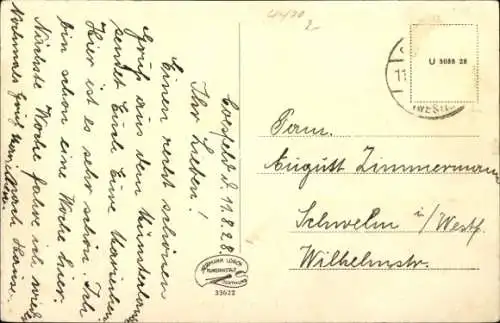 Coesfeld d. 11.8.28
Ihr Lieben!
Einen recht schönen
Gruß aus dem Münsterland
sendet Euch Eure
Hier ist es sehr schön. Ich
bin schon eine Woche hier.
Nächste Woche fahre ich wieder
nach Hause.
Nochmals Gruß
U 5088 28
11.
(WESTF.
Fam.
August Zimmermann
Schwelm i/Westf.
Wilhelmstr.
HERMANN LORCH
KUNSTANSTALT
DORTMUND
33622